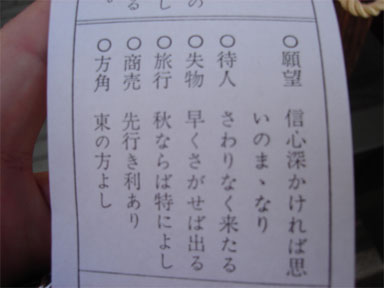 ○願望 信心深かければ思
いのまゝなり
○待人 さわりなく来たる
○失物 早くさがせば出る
○旅行 秋ならば特によし
○商売 先行き利あり
○方角 東の方よし